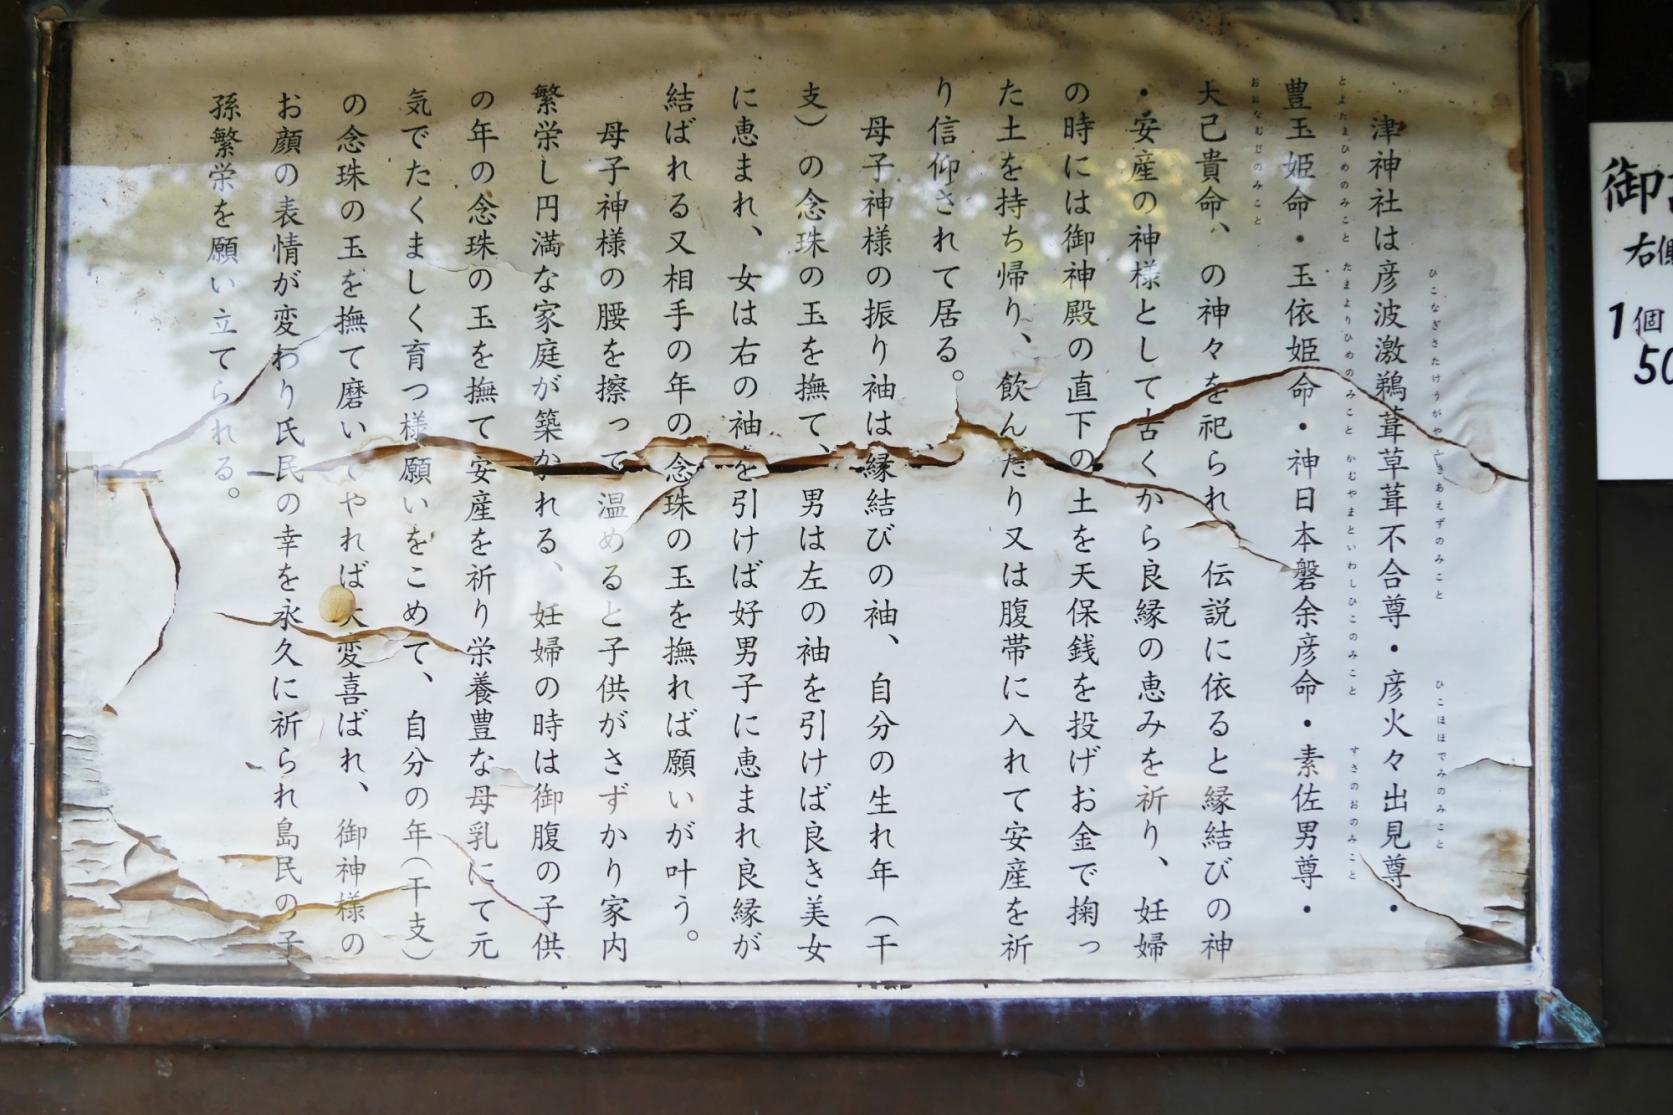 津神社は彦波激鵜葺草葺不合尊・彦火々出見尊・
ひこなぎさたけうがやふきあえずのみこと ひこほほでみのみこと
豊玉姫命・玉依姫命・神日本磐余彦命・素佐男尊・
とよたまひめのみこと たまよりひめのみこと かむやまといわしひこのみこと すさのおのみこと
大己貴命、の神々を祀られ、伝説に依ると縁結びの神
おおなむじのみこと
・安産の神様として古くから良縁の恵みを祈り、妊婦
の時には御神殿の直下の土を天保銭を投げお金で掬っ
た土を持ち帰り、飲んだり又は腹帯に入れて安産を祈
り信仰されて居る。
母子神様の振り袖は縁結びの袖、自分の生れ年(干
支)の念珠の玉を撫て、男は左の袖を引けば良き美女
に恵まれ、女は右の袖を引けば好男子に恵まれ良縁が
結ばれる又相手の年の念珠の玉を撫れば願いが叶う。
母子神様の腰を擦って温めると子供がさずかり家内
繁栄し円満な家庭が築かれる、妊婦の時は御腹の子供
の年の念珠の玉を撫て安産を祈り栄養豊な母乳にて元
気でたくましく育つ様願いをこめて、自分の年(干支)
の念珠の玉を撫て磨いてやれば大変喜ばれ、御神様の
お顔の表情が変わり氏民の幸を永久に祈られ島民の子
孫繁栄を願い立てられる。
御
右側
1個
50